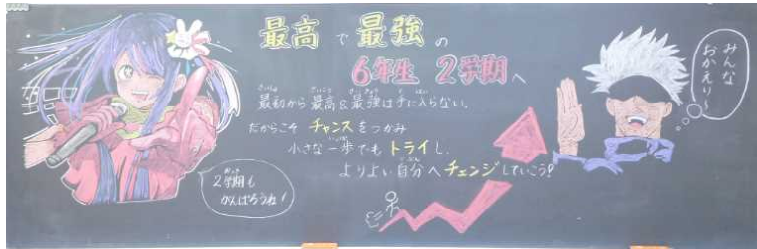 最高で最強の
6年生 2学期へ
最初から最高&最強は手に入らない。
だからこそ チャンスをつかみ
小さな一歩でも トライし、
よりよい自分へチェンジしていこう!
2学期も
がんばろうね!
みんな
おかえり〜